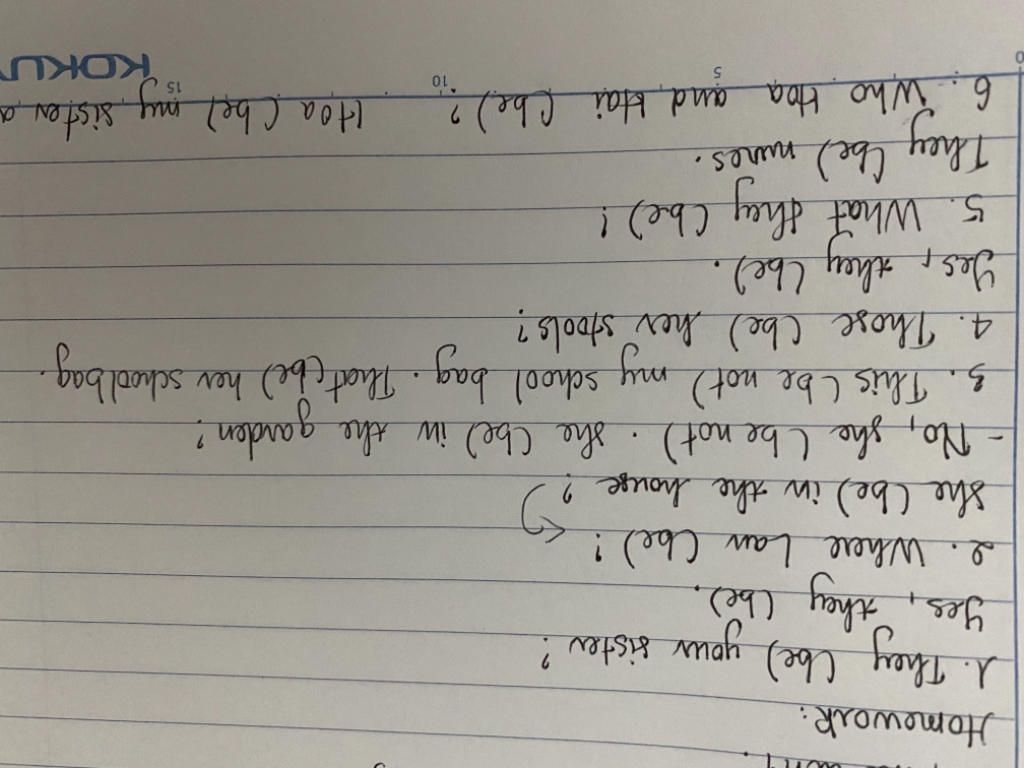 Homework:
1. They (be) your sister?
Yes, they (be).
2. Where Lan (be)?
She (be) in the house?
- No, she (be not). she (be) in the garden?
3. This (be not) my school bag. That (be) her schoolbag.
4. Those (be) her stools?
Yes, they (be).
5. What they (be)?
They (be) nurses.
6. Who Hoa and Hai (be)? Hoa (be) my sister a
0 5 10 15